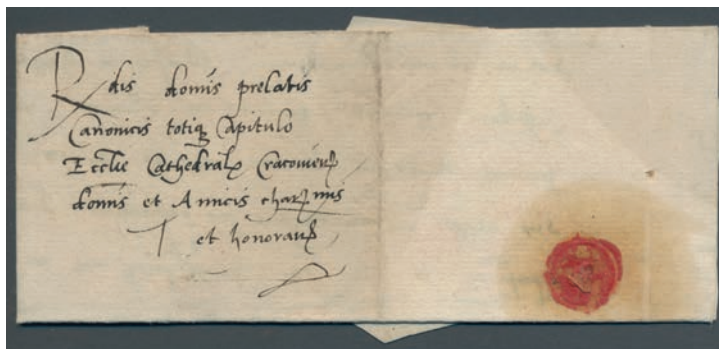 Rdis domis prelatis
Canonicis totiqȝ Capitulo
Ecclie Cathedralꝭ Cracovienꝭ
domis et Amicis charꝭmis
et honoranꝭ